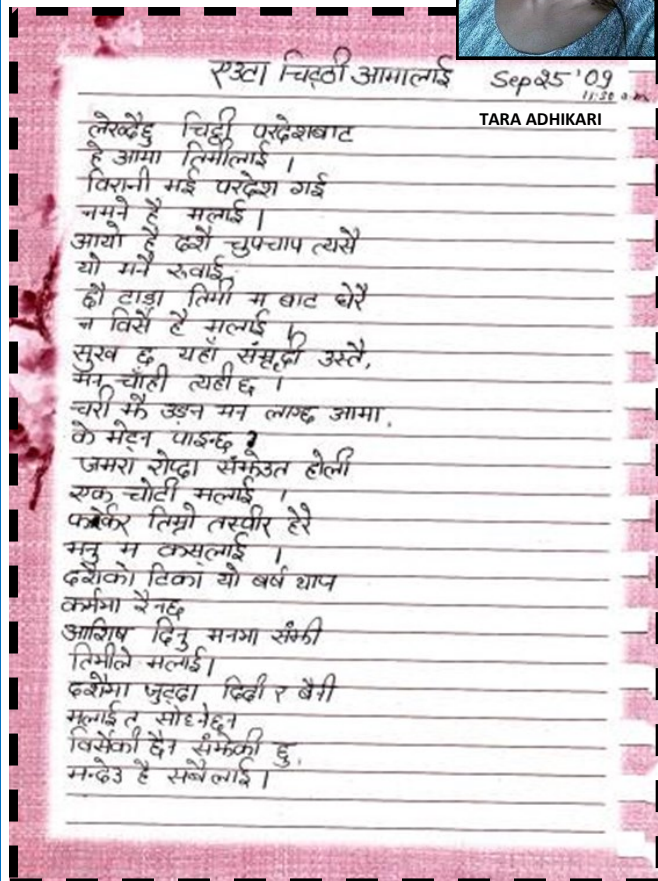 एउटा चिट्ठी आमालाई Sep 25 '09
11:30 a.m
TARA ADHIKARI
लेख्दैछु चिट्ठी परदेशबाट
हे आमा तिमीलाई ।
विरानी भई परदेश गई
नभने है मलाई ।
आयो है दशै चुपचाप त्यसै
यो मनै रुवाई
छौ टाडा तिमी म बाट धेरै
न विर्से है मलाई ।
सुख छ यहाँ संमृद्धी उस्तै,
मन चाँही त्यही छ ।
चरी झै उडन मन लाग्छ आमा,
के भेट्न पाइन्छ ?
जमरा रोप्दा संझेउत होली
एक चोटी मलाई ।
फर्केर तिम्रो तस्वीर हेरे
भनु म कसलाई ।
दशैको टिका यो बर्ष थाप्न
कर्ममा रैनछ
आशिष दिनु मनमा संझी
तिमीले मलाई।
दशैमा जुट्दा दिदी र बैनी
मलाई त सोध्नेछन
विर्सेकी छैन संझेकी छु,
भन्देउ है सबैलाई ।